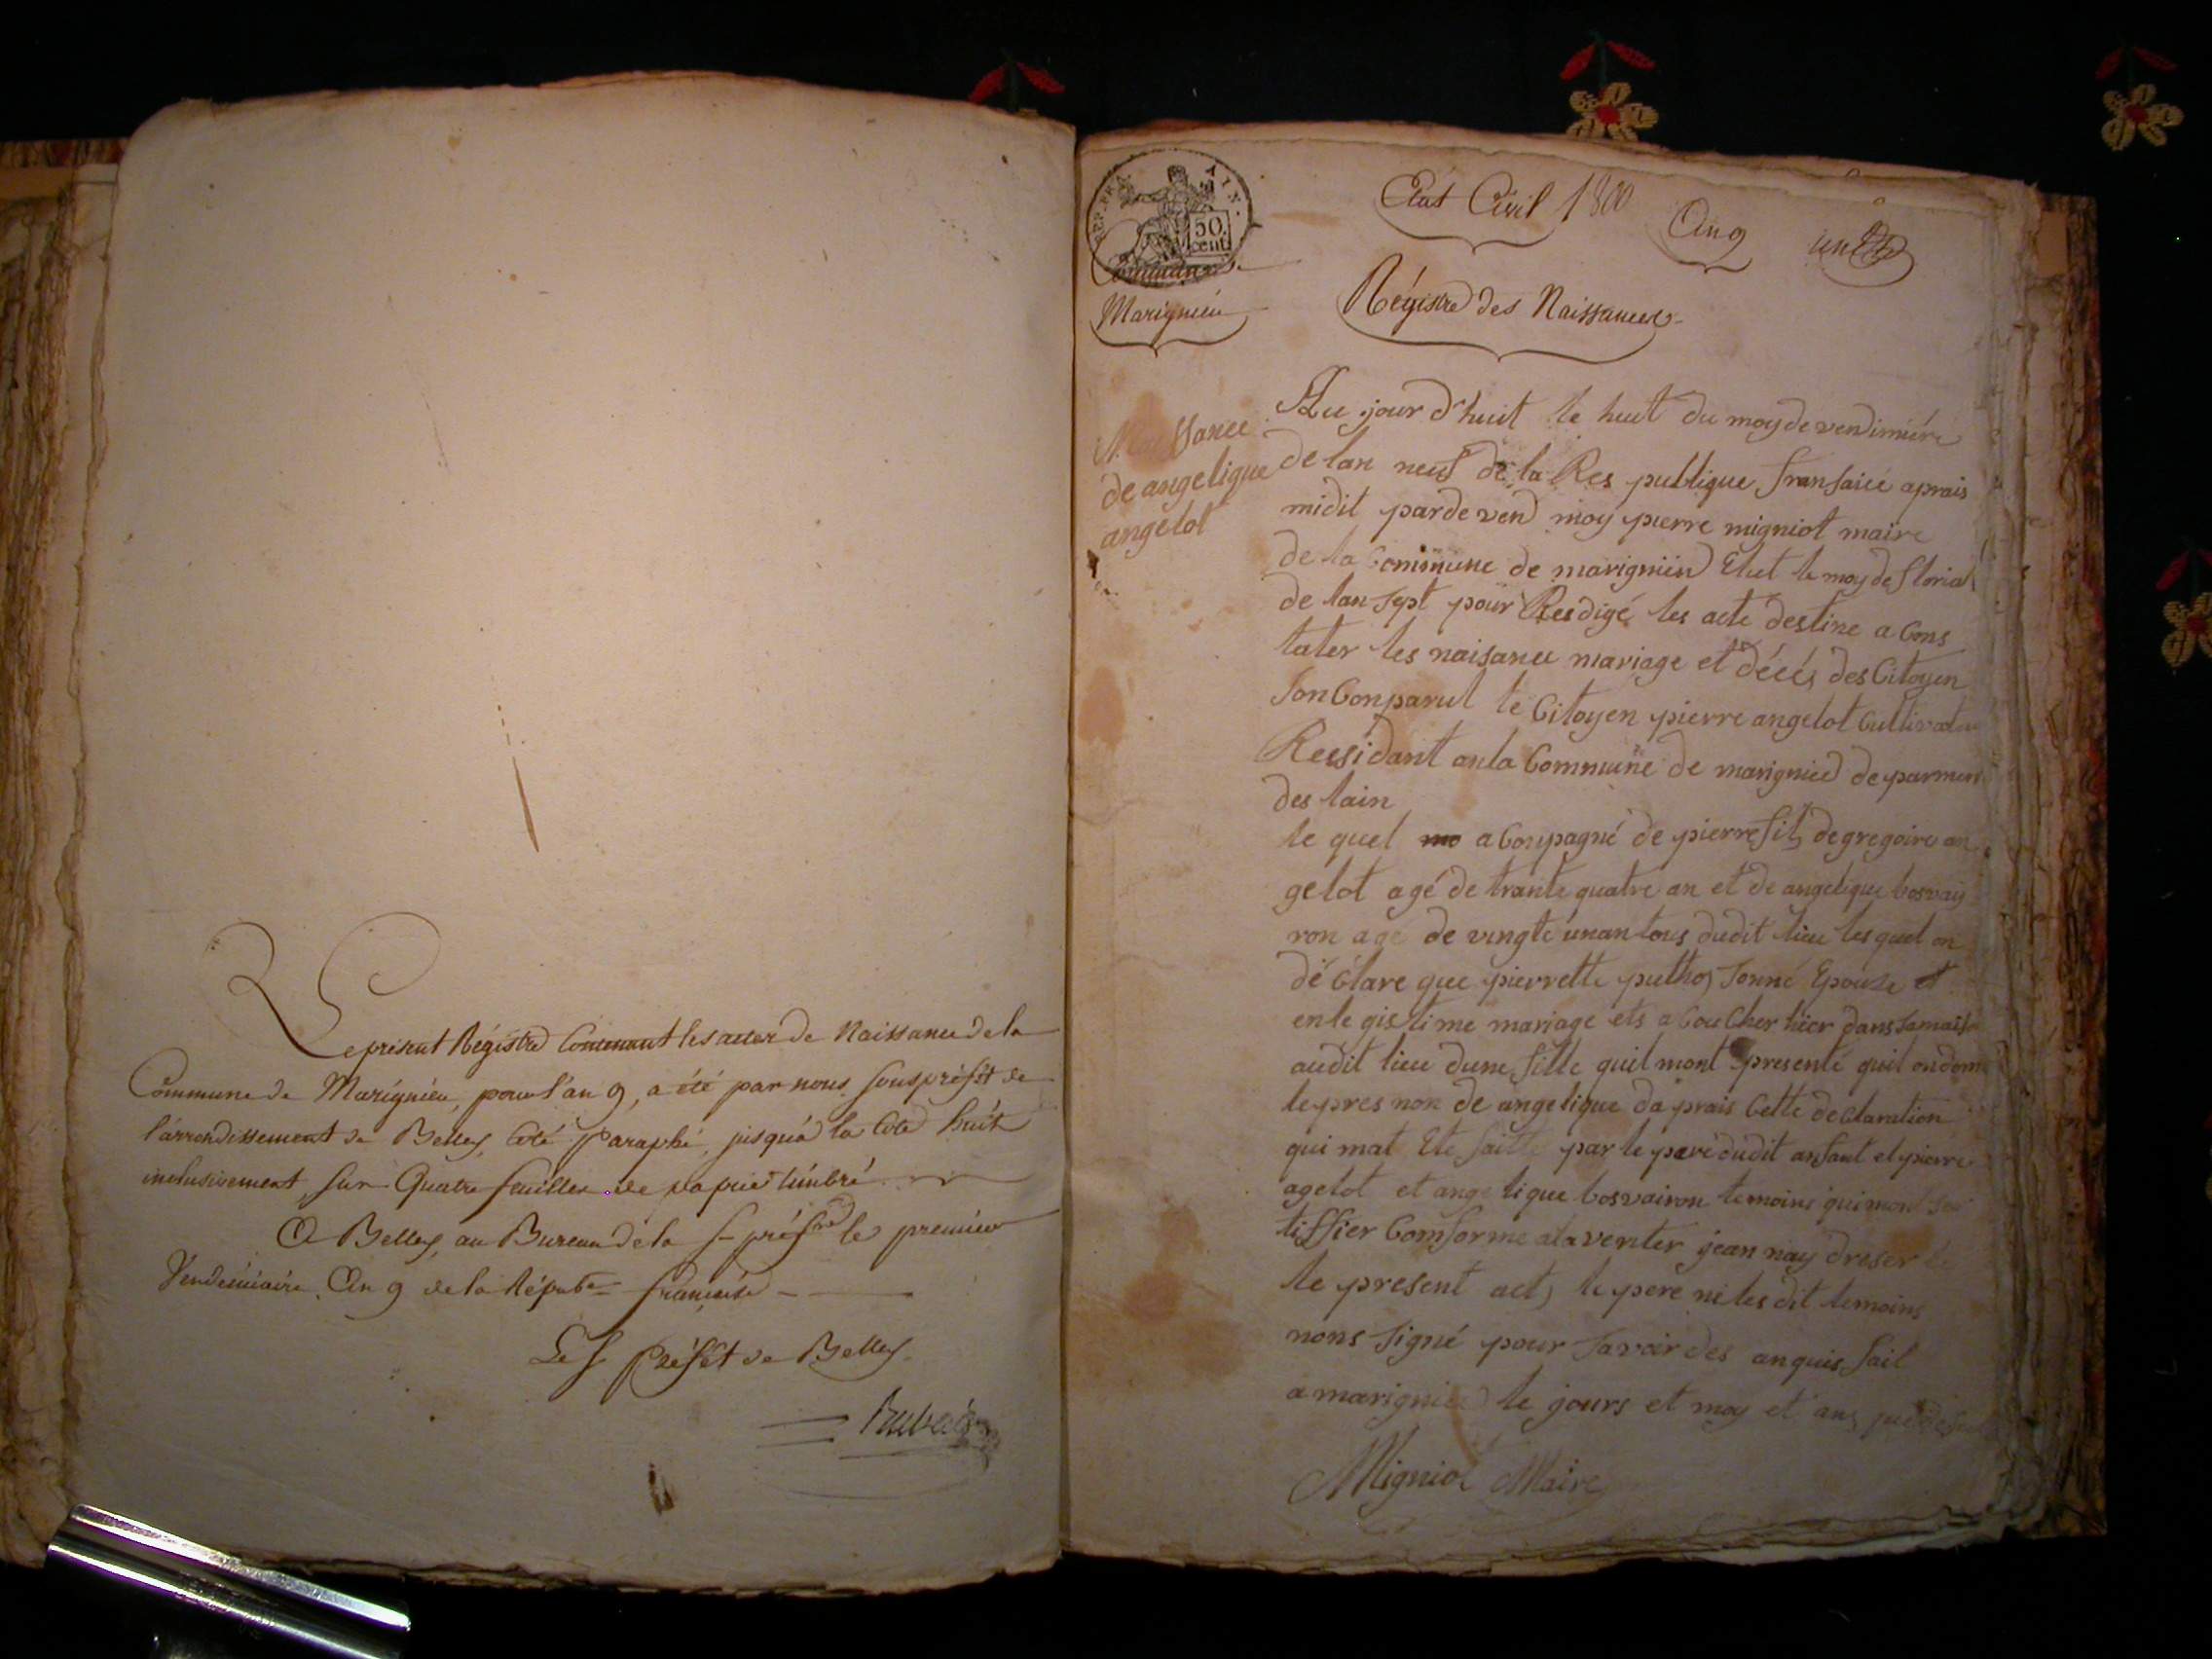 Le présent Régistre Contenant les actes de Naissance de la
Commune de Marignieu, pour l'an 9, a été par nous Sous préfet de
l'arrondissement de Belley, Coté Paraphé, jusqu'à la Cote huit
inclusivement, sur Quatre feuilles de papier timbré
A Belley, au Bureau de la S-préfre le premier
Vendémiaire An 9 de la Répube française
Le S Préfet de Belley
REP. FRA. AIN.
50
cent
Commune
Marignieu
Etat Civil 1800
An 9
un
Régistre des Naissances
Naissance
de angelique
angelot
Au jour d'huit le huit du moy de vendimiére
de lan neuf de la Res publique fransaice aprais
midit pardeven moy pierre migniot maire
de la Commune de marignieu Elut le moy de florial
de lan sept pour Resdigé les acte destine a Cons
tater les naisance mariage et décés des Citoyen
son Conparut le Citoyen pierre angelot Cultivateur
Ressidant an la Commune de marignieu de parmen
des lain
le quel mo a Conpagné de pierre fils de gregoire an
gelot agé de trante quatre an et de angelique bosvay
ron age de vingte un an tous dudit lieu les quel on
dé Clare que pierrette puthod sonne Epouze et
en le gistime mariage ets a Cou Cher hier dans samaison
audit lieu dune fille quil mont presenté quil on donne
le pres non de angelique da prais Cette de Claration
qui mat Ete faitte par le pere dudit anfant et pierre
agelot et angelique bosvairon temoins qui mont
tiffier Comforme a la veriter jean nay dreser le
le present act, le pere ni les dit temoins
nons signé pour savoir des anquis fait
a marignieu le jours et moy et ans
Migniot Maire